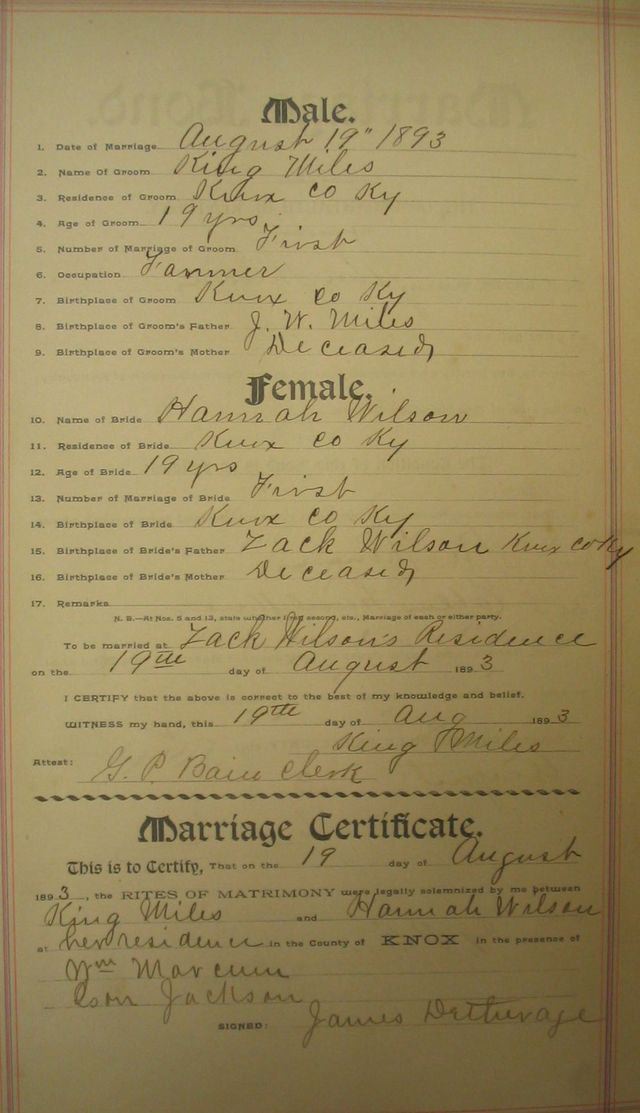 Male.
1. Date of Marriage August 19" 1893
2. Name Of Groom King Miles
3. Residence of Groom Knox co Ky
4. Age of Groom 19 yrs
5. Number of Marriage of Groom First
6. Occupation Farmer
7. Birthplace of Groom Knox co Ky
8. Birthplace of Groom's Father J. W. Miles
9. Birthplace of Groom's Mother Deceased
Female.
10. Name of Bride Hannah Wilson
11. Residence of Bride Knox co Ky
12. Age of Bride 19 yrs
13. Number of Marriage of Bride First
14. Birthplace of Bride Knox co Ky
15. Birthplace of Bride's Father Zack Wilson Knox co Ky
16. Birthplace of Bride's Mother Deceased
17. Remarks
N. B.—At Nos. 5 and 13, state whether first, second, etc., Marriage of each or either party.
To be married at Zack Wilson's Residence
on the 19th day of August 1893
I CERTIFY that the above is correct to the best of my knowledge and belief.
WITNESS my hand, this 19th day of Aug 1893
King Miles
Attest: G. P. Bain Clerk
Marriage Certificate.
This is to Certify, That on the 19 day of August
1893, the RITES OF MATRIMONY were legally solemnized by me between
King Miles and Hannah Wilson
at her residence in the County of KNOX in the presence of
Wm Marcum
Jackson
SIGNED: James